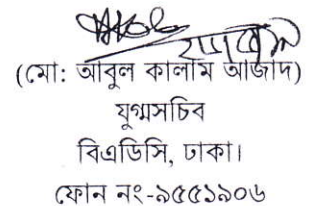 (মো: আবুল কালাম আজাদ)
যুগ্মসচিব
বিএডিসি, ঢাকা।
ফোন নং-৯৫৫১৯০৬